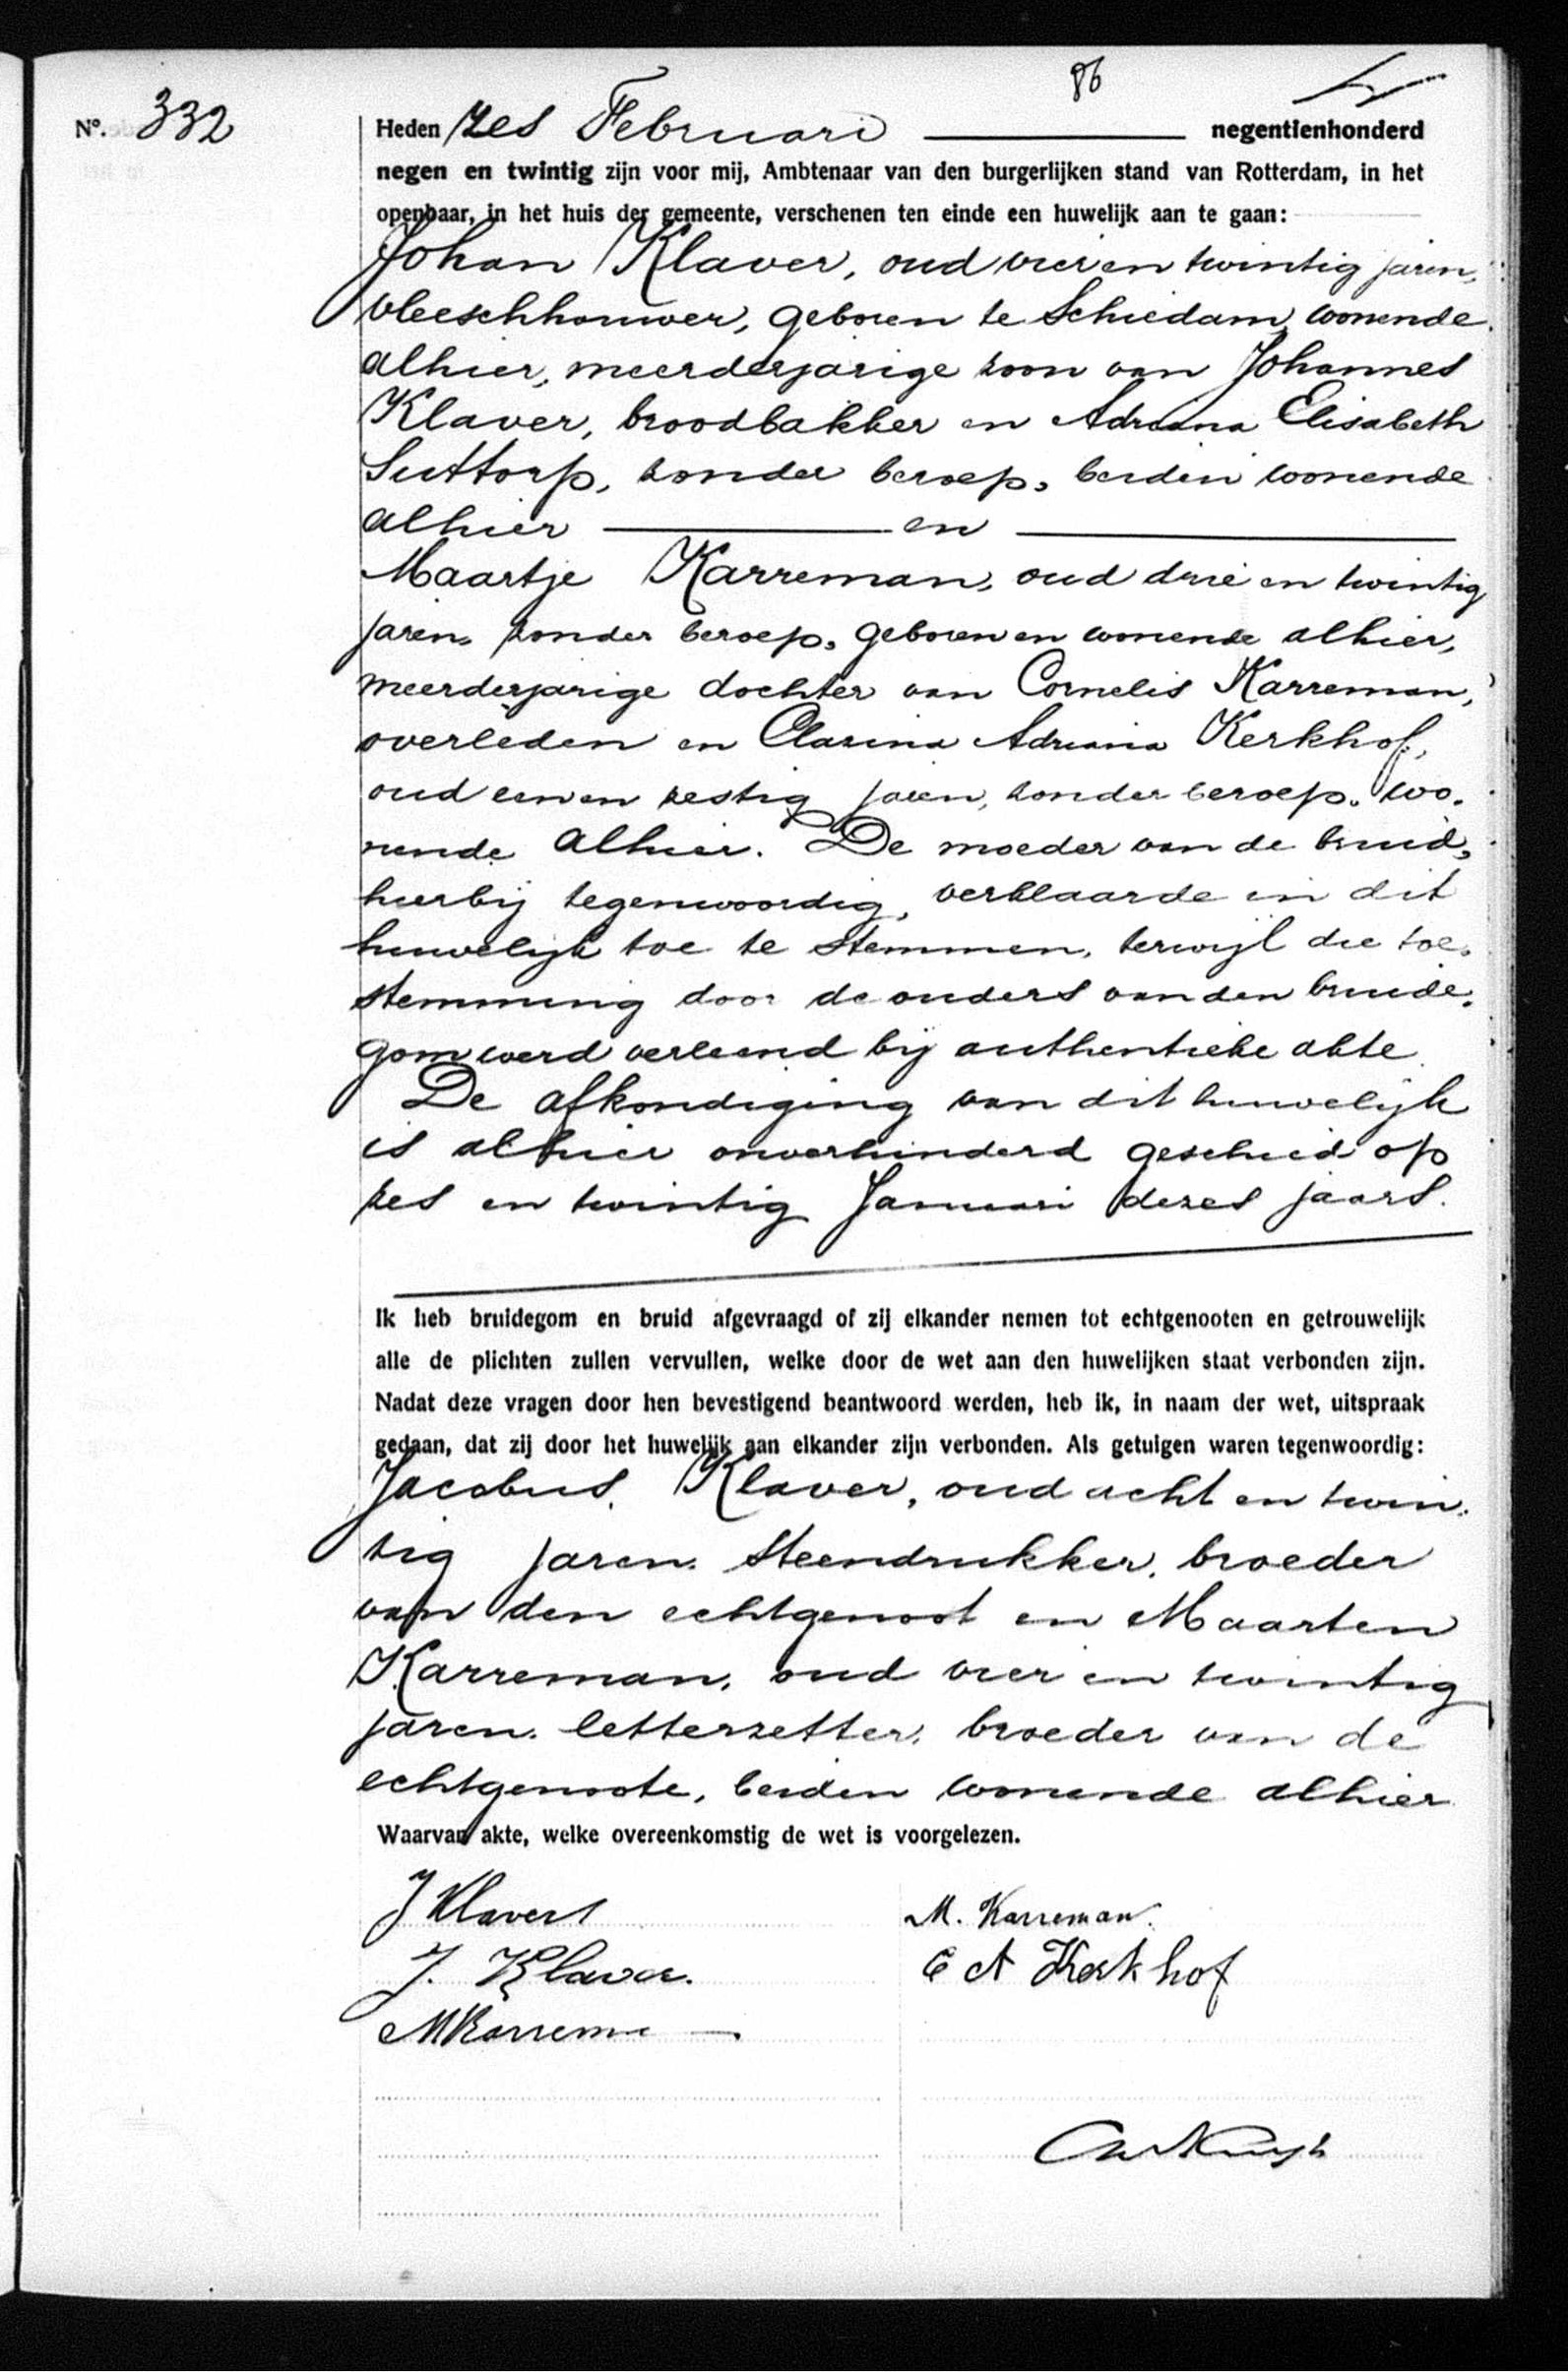 86
Nº. 332
Heden zes Februari negentienhonderd
negen en twintig zijn voor mij, Ambtenaar van den burgerlijken stand van Rotterdam, in het
openbaar, in het huis der gemeente, verschenen ten einde een huwelijk aan te gaan:
Johan Klaver, oud vier en twintig jaren,
vleeschhouwer, geboren te Schiedam, wonende
alhier, meerderjarige zoon van Johannes
Klaver, broodbakker en Adriana Elisabeth
Suttorp, zonder beroep, beiden wonende
alhier en
Maartje Karreman, oud drie en twintig
jaren, zonder beroep, geboren en wonende alhier,
meerderjarige dochter van Cornelis Karreman,
overleden en Clasina Adriana Kerkhof,
oud een en zestig jaren, zonder beroep, wo-
nende alhier. De moeder van de bruid,
hierbij tegenwoordig, verklaarde in dit
huwelijk toe te stemmen, terwijl die toe-
stemming door de ouders van den bruide-
gom werd verleend bij authentieke akte.
De afkondiging van dit huwelijk
is alhier onverhinderd geschied op
zes en twintig Januari dezes jaars.
Ik heb bruidegom en bruid afgevraagd of zij elkander nemen tot echtgenooten en getrouwelijk
alle de plichten zullen vervullen, welke door de wet aan den huwelijken staat verbonden zijn.
Nadat deze vragen door hen bevestigend beantwoord werden, heb ik, in naam der wet, uitspraak
gedaan, dat zij door het huwelijk aan elkander zijn verbonden. Als getuigen waren tegenwoordig:
Jacobus Klaver, oud acht en twin-
tig jaren, steendrukker, broeder
van den echtgenoot en Maarten
Karreman, oud vier en twintig
jaren, letterzetter, broeder van de
echtgenoote, beiden wonende alhier
Waarvan akte, welke overeenkomstig de wet is voorgelezen.
J Klaver
M. Karreman.
J. Klaver.
C A Kerkhof
M Karreman